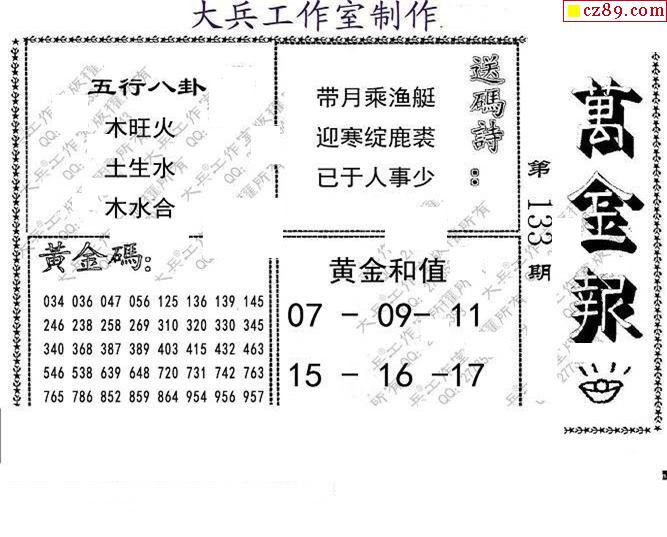 大兵工作室制作
cz89.com
五行八卦
木旺火
土生水
木水合
送碼詩：
带月乘渔艇
迎寒绽鹿裘
已于人事少
萬金報
第133期
黃金碼：
034 036 047 056 125 136 139 145
246 238 258 269 310 320 330 345
340 368 387 389 403 415 432 463
546 538 639 648 720 731 742 763
765 786 852 859 864 954 956 957
黄金和值
07 - 09- 11
15 - 16 -17